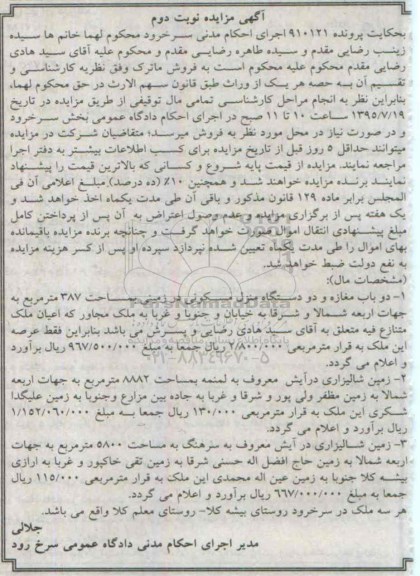 آگهی مزایده نوبت دوم
بحکایت پرونده ۹۱۰۱۲۱ اجرای احکام مدنی سرخرود محکوم لهما خانم ها سیده
زینب رضایی مقدم و سیده طاهره رضایی مقدم و محکوم علیه آقای سید هادی
رضایی مقدم محکوم علیه محکوم است به فروش ماترک وفق نظریه کارشناسی و
تقسیم آن به حصه هر یک از وراث طبق قانون سهم الارث در حق محکوم لهما،
بنابراین نظر به انجام مراحل کارشناسی تمامی مال توقیفی از طریق مزایده در تاریخ
۱۳۹۵/۷/۱۹ ساعت ۱۰ تا ۱۱ صبح در اجرای احکام دادگاه عمومی بخش سرخرود
و در صورت نیاز در محل مورد نظر به فروش میرسد؛ متقاضیان شرکت در مزایده
میتوانند حداقل ۵ روز قبل از تاریخ مزایده برای کسب اطلاعات بیشتر به دفتر اجرا
مراجعه نمایند. مزایده از قیمت پایه شروع و کسانی که بالاترین قیمت را پیشنهاد
نمایند برنده مزایده خواهند شد و همچنین ۱۰٪ (ده درصد) مبلغ اعلامی آن فی
المجلس برابر ماده ۱۲۹ قانون مذکور و باقی آن طی مدت یکماه اخذ خواهد شد و
یک هفته پس از برگزاری مزایده و عدم وصول اعتراض به آن پس از پرداختن کامل
مبلغ پیشنهادی انتقال اموال صورت خواهد گرفت و چنانچه برنده مزایده باقیمانده
بهای اموال را طی مدت یکماه تعیین شده نپردازد سپرده او پس از کسر هزینه مزایده
به نفع دولت ضبط خواهد شد.
(مشخصات مال):
۱- دو باب مغازه و دو دستگاه منزل مسکونی در زمینی بمساحت ۳۸۷ مترمربع به
جهات اربعه شمالا و شرقا به خیابان و جنوبا و غربا به ملک مجاور که اعیان ملک
متنازع فیه متعلق به آقای سید هادی رضایی و پسرش می باشد بنابراین فقط عرصه
این ملک به قرار مترمربعی ۲/۸۰۰/۰۰۰ ریال جمعا به مبلغ ۹۶۷/۵۰۰/۰۰۰ ریال برآورد
و اعلام می گردد.
۲- زمین شالیزاری درآیش معروف به لمنمه بمساحت ۸۸۸۲ مترمربع به جهات اربعه
شمالا به زمین مظفر ولی پور و شرقا و غربا به جاده بین مزارع وجنوبا به زمین علیگدا
شکری این ملک به قرار مترمربعی ۱۳۰/۰۰۰ ریال جمعا به مبلغ ۱/۱۵۲/۰۶۰/۰۰۰
ریال برآورد و اعلام می گردد.
۳- زمین شالیزاری در آیش معروف به سرهنگ به مساحت ۵۸۰۰ مترمربع به جهات
اربعه شمالا به زمین حاج افضل اله حسنی شرقا به زمین تقی خاکپور و غربا به ارازی
بیشه کلا جنوبا به زمین عین اله محمدی این ملک به قرار مترمربعی ۱۱۵/۰۰۰ ریال
جمعا به مبلغ ۶۶۷/۰۰۰/۰۰۰ ریال برآورد و اعلام می گردد.
هر سه ملک در سرخرود روستای بیشه کلا- روستای معلم کلا واقع می باشد.
جلالی
مدیر اجرای احکام مدنی دادگاه عمومی سرخ رود
۰۲۱-۸۸۳۴۹۶۷۰-۵